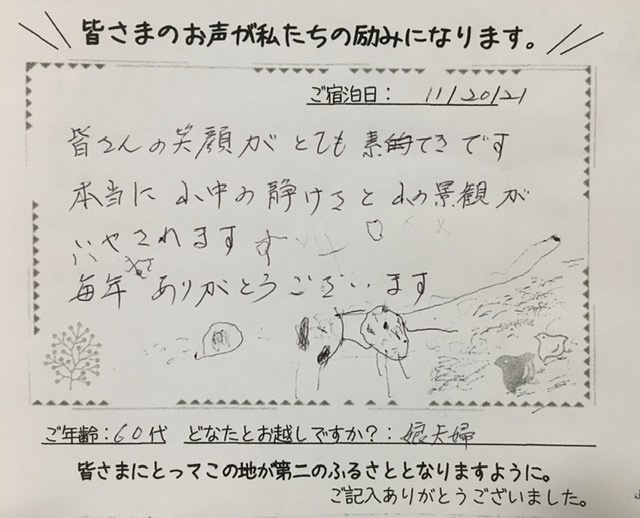 皆さまのお声が私たちの励みになります。
ご宿泊日: 11/20/21
皆さんの笑顔がとても素的てきです
本当に山中の静けさと山の景観が
いやされます
毎年ありがとうございます
ご年齢:60代 どなたとお越しですか?:娘夫婦
皆さまにとってこの地が第二のふるさととなりますように。
ご記入ありがとうございました。